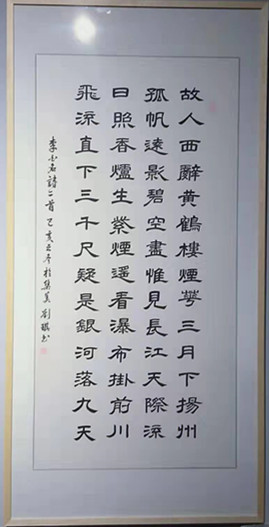 故人西辭黃鶴樓煙華三月下揚州
孤帆遠影碧空盡惟見長江天際流
日照香爐生紫煙遙看瀑布掛前川
飛流直下三千尺疑是銀河落九天
李白名詩二首 己亥立冬於集美 劉書